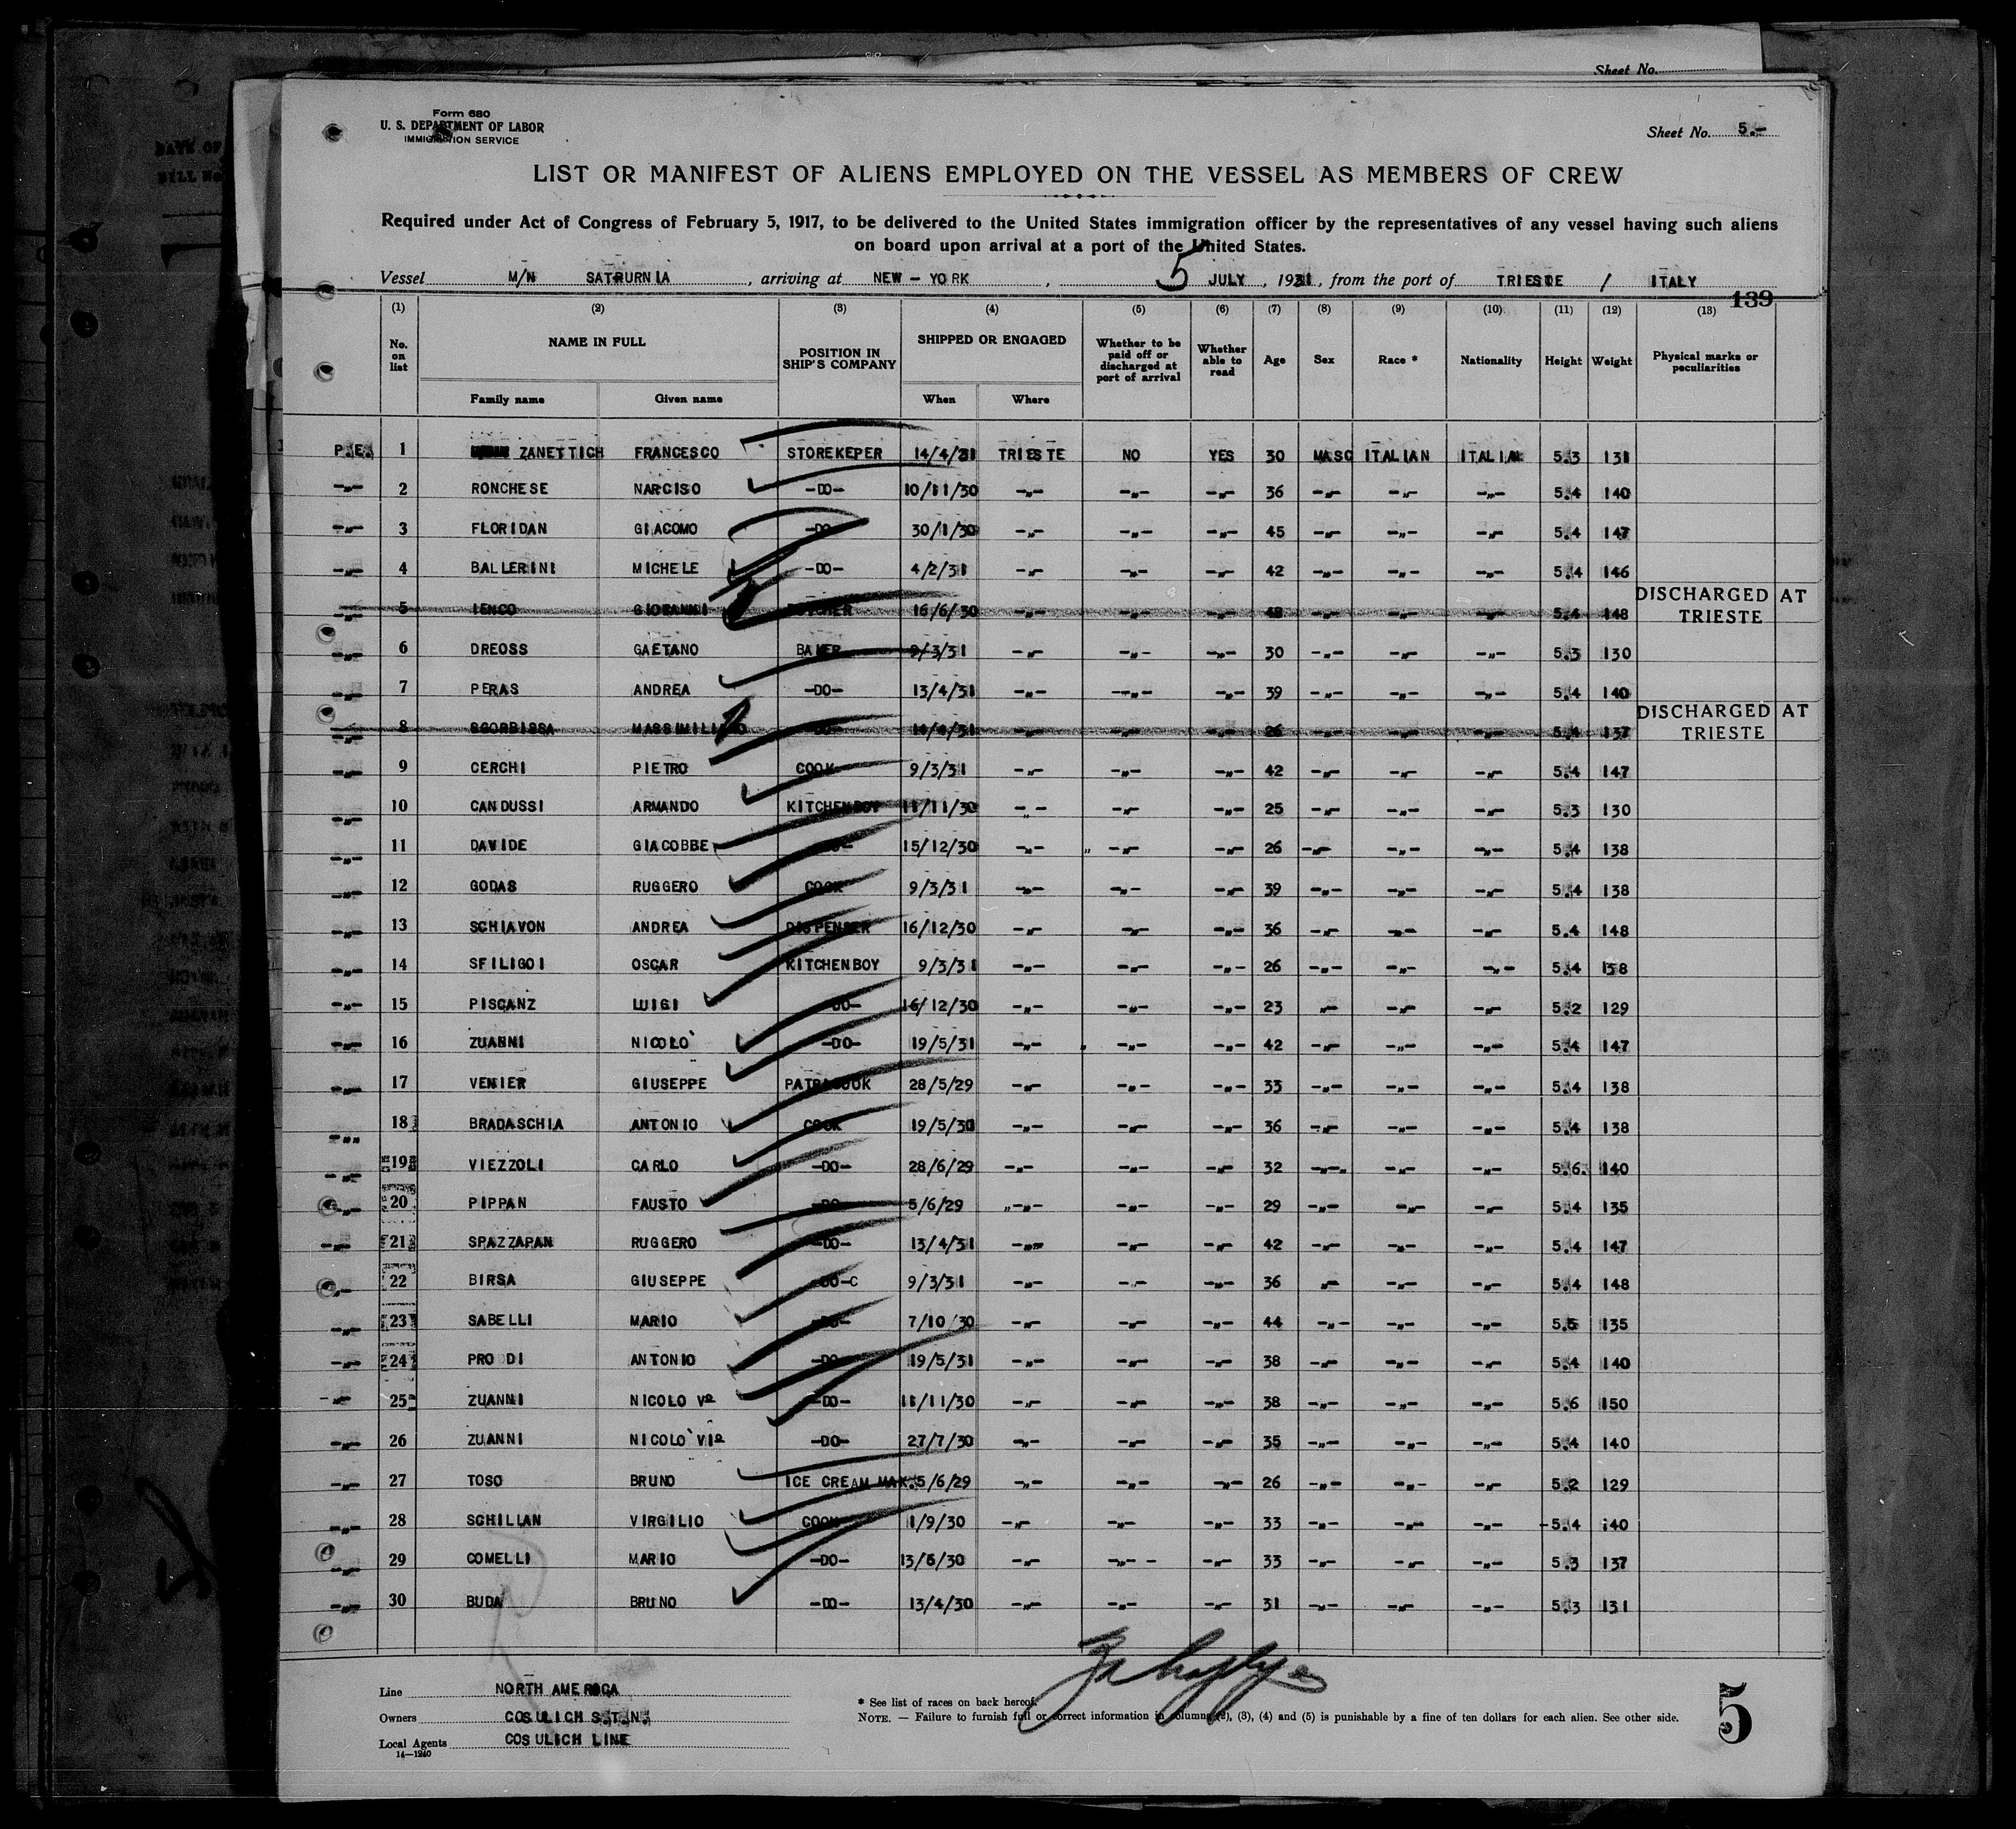 Sheet No.
Form 680
U. S. DEPARTMENT OF LABOR
IMMIGRATION SERVICE
Sheet No. 5.-
LIST OR MANIFEST OF ALIENS EMPLOYED ON THE VESSEL AS MEMBERS OF CREW
Required under Act of Congress of February 5, 1917, to be delivered to the United States immigration officer by the representatives of any vessel having such aliens
on board upon arrival at a port of the United States.
Vessel M/N SATRURNIA, arriving at NEW-YORK, 5 JULY, 1931, from the port of TRIESTE / ITALY
139
(1) (2) (3) (4) (5) (6) (7) (8) (9) (10) (11) (12) (13)
No. on list NAME IN FULL Family name Given name POSITION IN SHIP'S COMPANY SHIPPED OR ENGAGED When Where Whether to be paid off or discharged at port of arrival Whether able to read Age Sex Race * Nationality Height Weight Physical marks or peculiarities
P.E. 1 ZANETTICH FRANCESCO STOREKEPER 14/4/31 TRIESTE NO YES 30 MASC ITALIAN ITALIAN 5.3 131
-"- 2 RONCHESE NARCISO -DO- 10/11/30 -"- -"- -"- 36 -"- -"- -"- 5.4 140
-"- 3 FLORIDAN GIACOMO -DO- 30/1/30 -"- -"- -"- 45 -"- -"- -"- 5.4 147
-"- 4 BALLERINI MICHELE -DO- 4/2/31 -"- -"- -"- 42 -"- -"- -"- 5.4 146
-"- 5 IENCO GIOVANNI BUTCHER 16/6/30 -"- -"- -"- 48 -"- -"- -"- 5.4 148 DISCHARGED AT TRIESTE
-"- 6 DREOSS GAETANO BAKER 9/3/31 -"- -"- -"- 30 -"- -"- -"- 5.3 130
-"- 7 PERAS ANDREA -DO- 13/4/31 -"- -"- -"- 39 -"- -"- -"- 5.4 140
-"- 8 SGORBISSA MASSIMILIANO -DO- -"- -"- -"- 26 -"- -"- -"- 5.4 137 DISCHARGED AT TRIESTE
-"- 9 CERCHI PIETRO COOK 9/3/31 -"- -"- -"- 42 -"- -"- -"- 5.4 147
-"- 10 CANDUSSI ARMANDO KITCHENBOY 11/11/30 -"- -"- -"- 25 -"- -"- -"- 5.3 130
-"- 11 DAVIDE GIACOBBE -DO- 15/12/30 -"- -"- -"- 26 -"- -"- -"- 5.4 138
-"- 12 GODAS RUGGERO COOK 9/3/31 -"- -"- -"- 39 -"- -"- -"- 5.4 138
-"- 13 SCHIAVON ANDREA DISPENSER 16/12/30 -"- -"- -"- 36 -"- -"- -"- 5.4 148
-"- 14 SFILIGOI OSCAR KITCHENBOY 9/3/31 -"- -"- -"- 26 -"- -"- -"- 5.4 138
-"- 15 PISCANZ LUIGI -DO- 16/12/30 -"- -"- -"- 23 -"- -"- -"- 5.2 129
-"- 16 ZUANNI NICOLO' -DO- 19/5/31 -"- -"- -"- 42 -"- -"- -"- 5.4 147
-"- 17 VENIER GIUSEPPE 28/5/29 -"- -"- -"- 33 -"- -"- -"- 5.4 138
-"- 18 BRADASCHIA ANTONIO COOK 19/5/30 -"- -"- -"- 36 -"- -"- -"- 5.4 138
-"- 19 VIEZZOLI CARLO -DO- 28/6/29 -"- -"- -"- 32 -"- -"- -"- 5.6. 140
-"- 20 PIPPAN FAUSTO -DO- 5/6/29 -"- -"- -"- 29 -"- -"- -"- 5.4 135
-"- 21 SPAZZAPAN RUGGERO -DO- 13/4/31 -"- -"- -"- 42 -"- -"- -"- 5.4 147
-"- 22 BIRSA GIUSEPPE -DO-C 9/3/31 -"- -"- -"- 36 -"- -"- -"- 5.4 148
-"- 23 SABELLI MARIO -DO- 7/10/30 -"- -"- -"- 44 -"- -"- -"- 5.5 135
-"- 24 PRODI ANTONIO -DO- 19/5/31 -"- -"- -"- 38 -"- -"- -"- 5.4 140
-"- 25 ZUANNI NICOLO Vº -DO- 11/11/30 -"- -"- -"- 38 -"- -"- -"- 5.6 150
-"- 26 ZUANNI NICOLO' VIº -DO- 27/7/30 -"- -"- -"- 35 -"- -"- -"- 5.4 140
-"- 27 TOSO BRUNO ICE CREAM MAK. 5/6/29 -"- -"- -"- 26 -"- -"- -"- 5.2 129
-"- 28 SCHILLAN VIRGILIO COOK 1/9/30 -"- -"- -"- 33 -"- -"- -"- 5.4 140
-"- 29 COMELLI MARIO -DO- 13/6/30 -"- -"- -"- 33 -"- -"- -"- 5.3 137
-"- 30 BUDA BRUNO -DO- 13/4/30 -"- -"- -"- 31 -"- -"- -"- 5.3 131
Line NORTH AMERICA
Owners COSULICH S.T.N.
Local Agents COSULICH LINE
14-1240
* See list of races on back hereof.
NOTE. — Failure to furnish full or correct information in columns (2), (3), (4) and (5) is punishable by a fine of ten dollars for each alien. See other side.
5